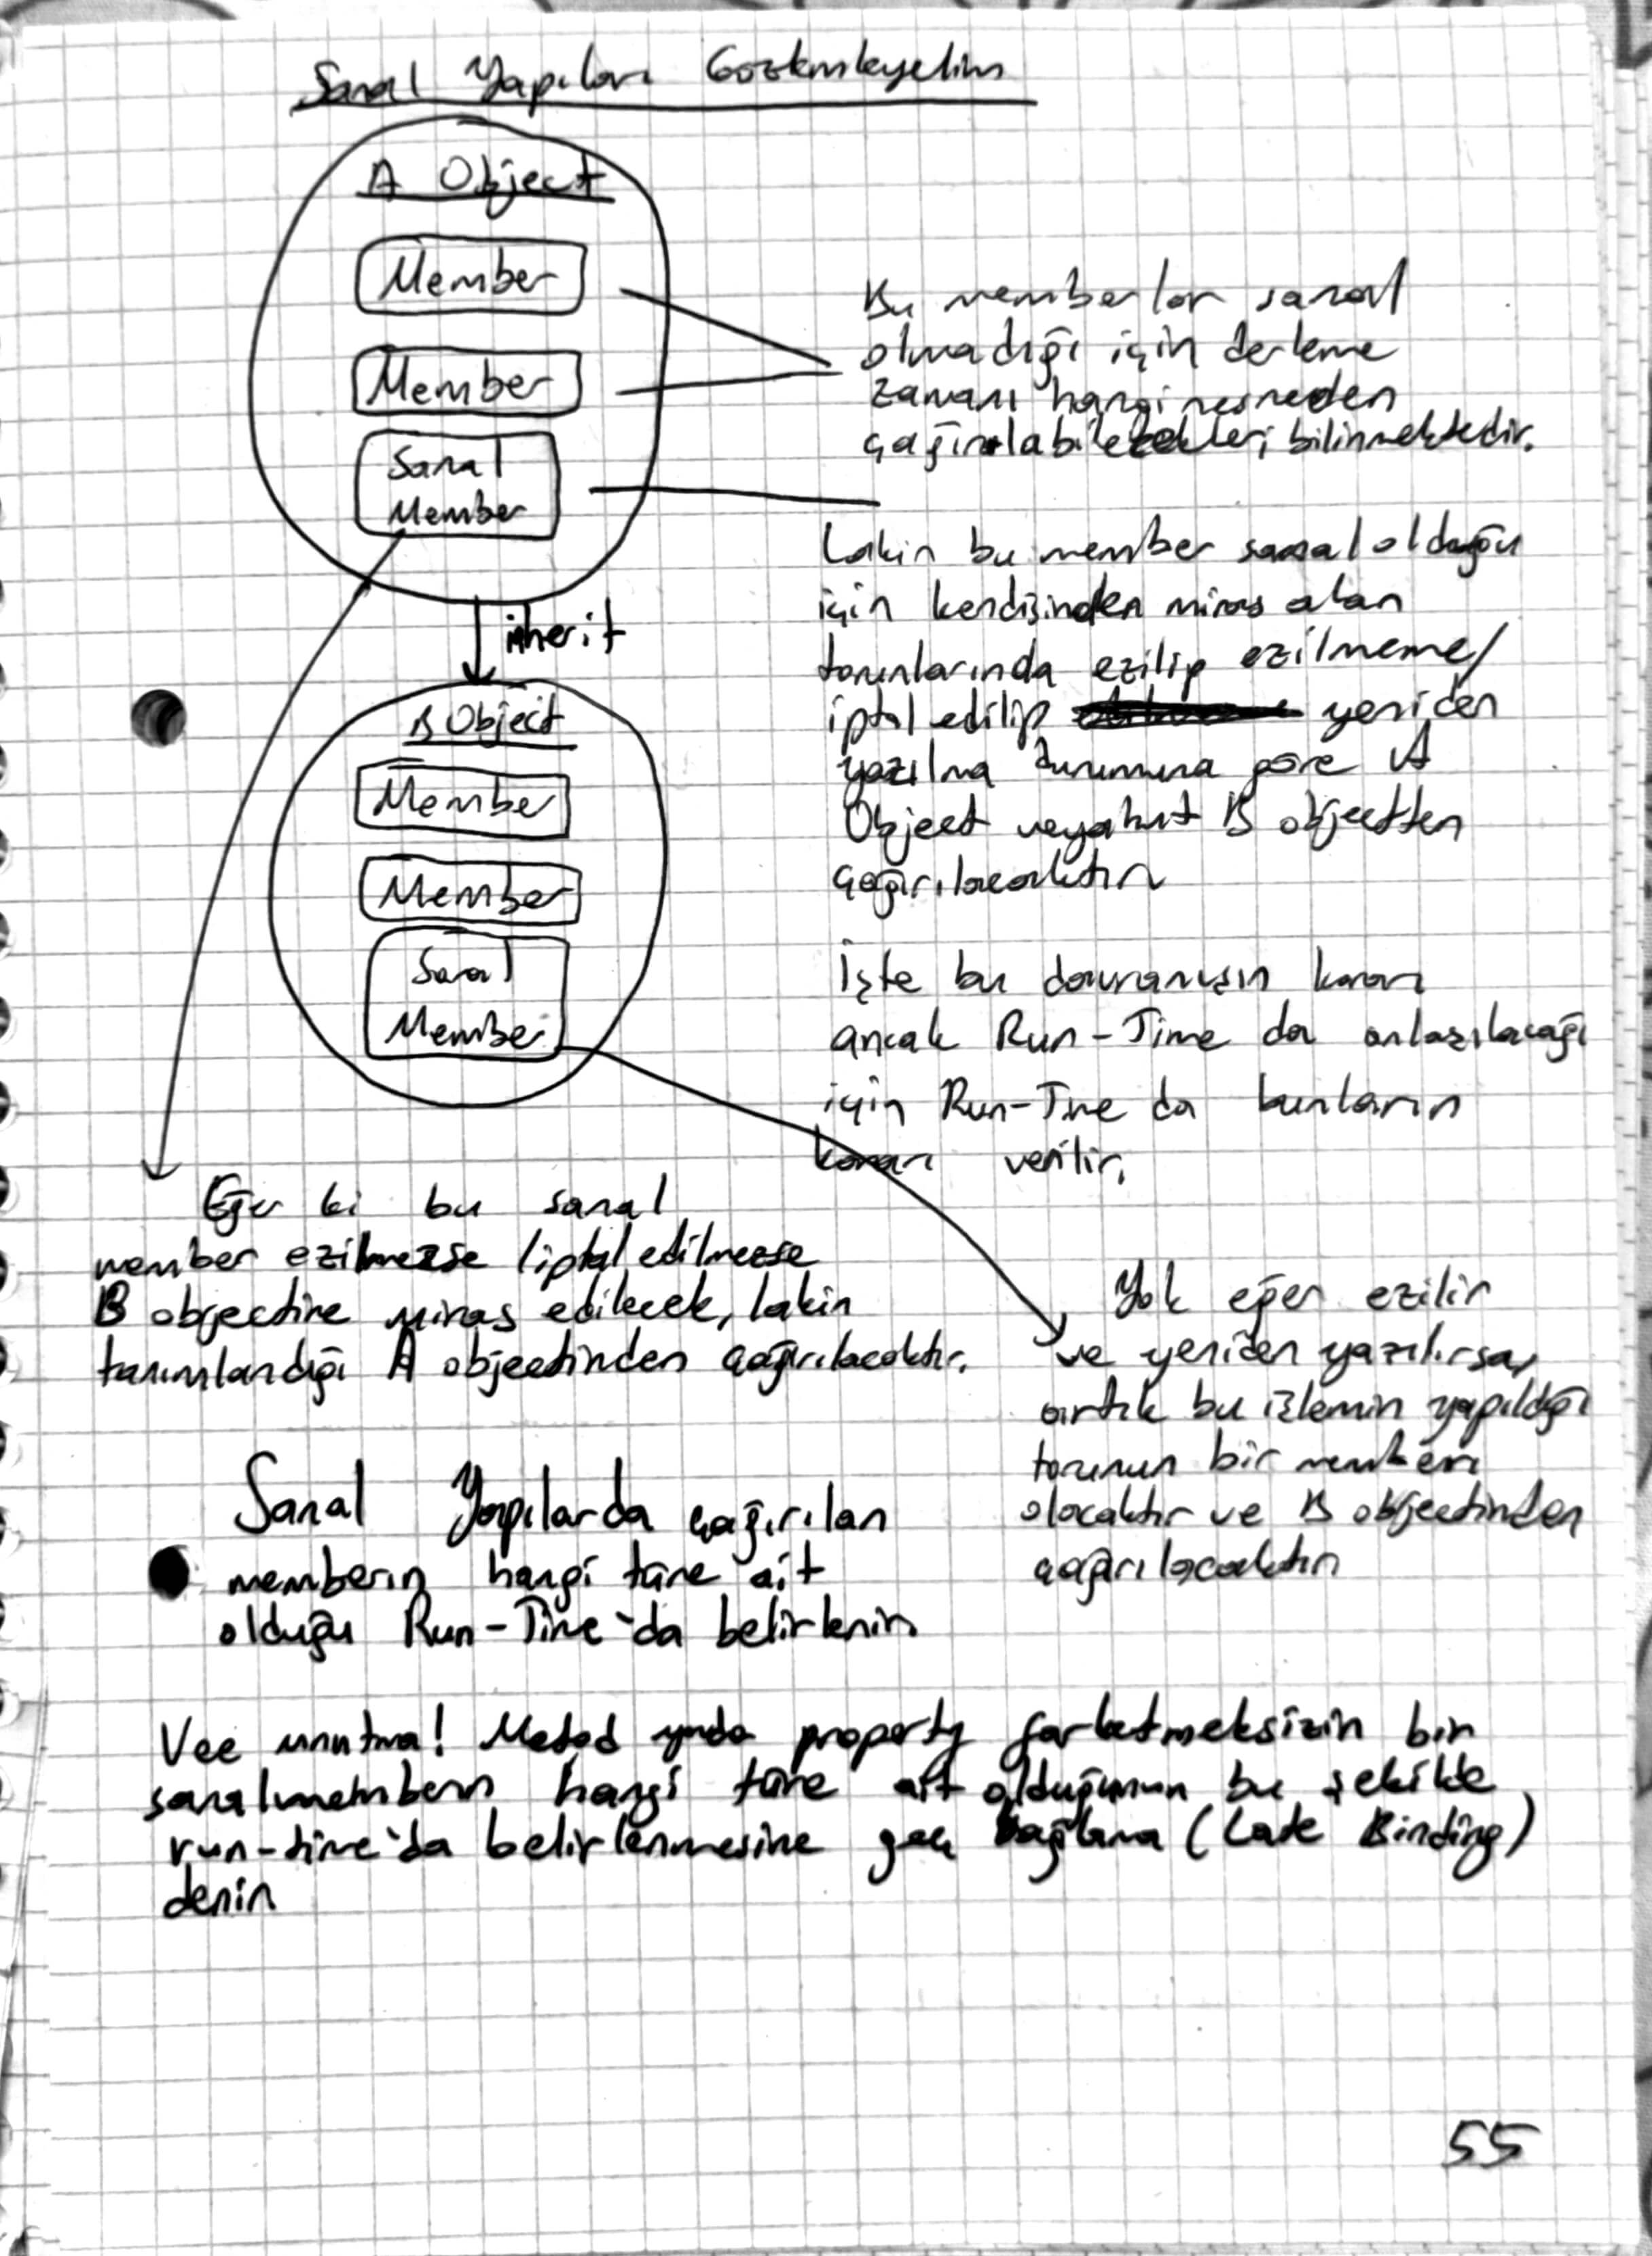 Sanal Yapıları
A Object
Member
Member
Sanal
Member
Bu memberlar sanal
olmadığı için derleme
zamanı hangi nesneden
çağırılabilecekleri bilinmektedir.
Lakin bu member sanal olduğu
için kendisinden miras alan
torunlarında ezilip ezilmeme/
iptal edilip yeniden
yazılma durumuna göre A
Object veyahut B objectten
çağırılacaktır
inherit
B Object
Member
Member
Sanal
Member
İşte bu davranışın kararı
ancak Run-Time da anlaşılacağı
için Run-Time da bunların
kararı verilir.
Eğer ki bu sanal
member ezilmezse /iptal edilmezse
B objectine miras edilecek, lakin
tanımlandığı A objectinden çağırılacaktır.
Yok eğer ezilir
ve yeniden yazılırsa,
artık bu işlemin yapıldığı
torunun bir memberı
olacaktır ve B objectinden
çağırılacaktır
Sanal Yapılarda çağırılan
memberın hangi türe ait
olduğu Run-Time'da belirlenir.
Vee unutma! Metod yada property farketmeksizin bir
sanal memberın hangi türe ait olduğunun bu şekilde
run-time'da belirlenmesine geç bağlama (Late Binding)
denir
55